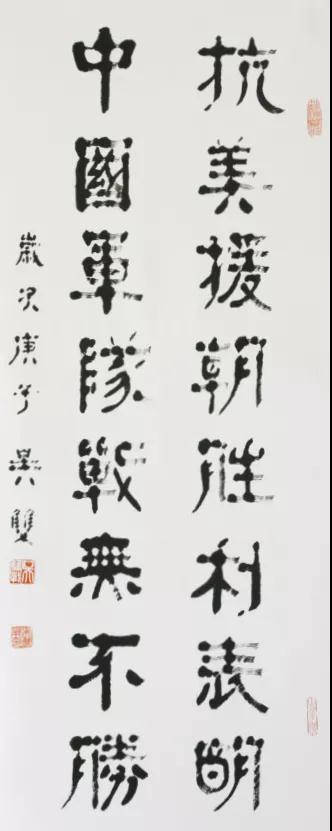 抗美援朝胜利表明
中國軍隊戰無不勝
歲次庚子 吳雙